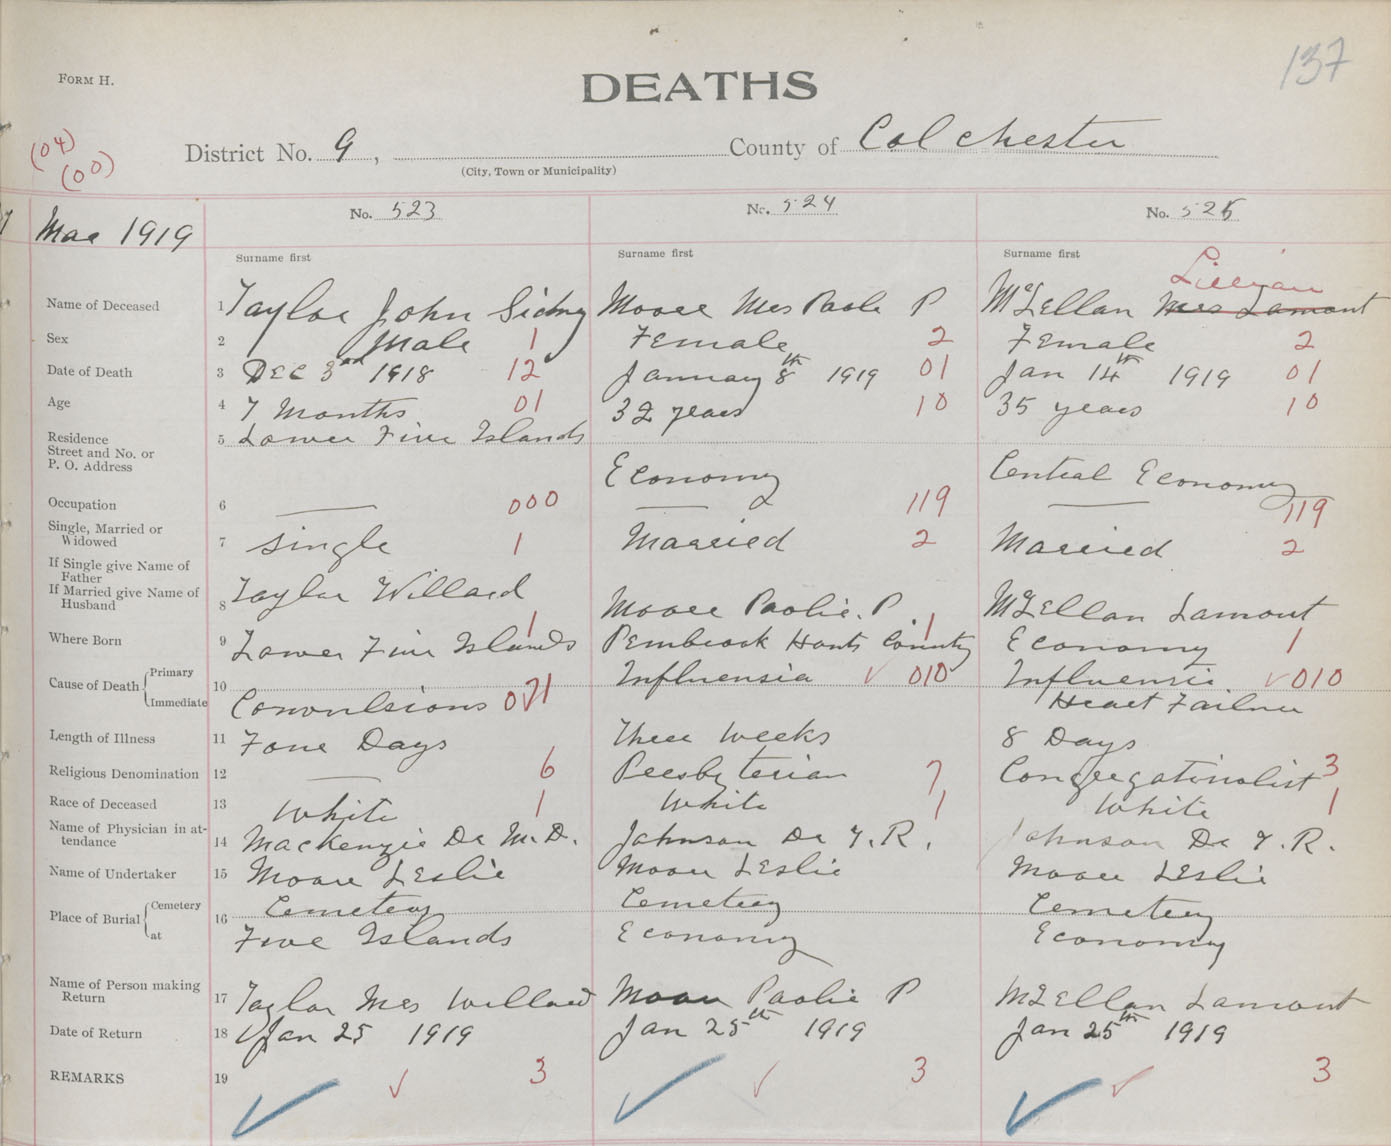 FORM H.
137
DEATHS
(04)
(00)
District No. 9, County of Colchester
(City, Town or Municipality)
Mar 1919 No. 523 No. 524 No. 525
Surname first Surname first Surname first
Lillian
Name of Deceased 1 Taylor John Sidny Moore Mrs Paole P McLellan Mrs Lamont
Sex 2 Male 1 Female 2 Female 2
Date of Death 3 Dec 3rd 1918 12 January 8th 1919 01 Jan 14th 1919 01
Age 4 7 Months 01 32 years 10 35 years 10
Residence
Street and No. or
P. O. Address
5 Lower Five Islands Economy Central Economy
Occupation 6 — 000 — 119 — 119
Single, Married or
Widowed
7 Single 1 Married 2 Married 2
If Single give Name of
Father
If Married give Name of
Husband
8 Taylor Willard Moore Paolie. P McLellan Lamont
Where Born 9 Lower Five Islands 1 Pembrock Hants County 1 Economy 1
Cause of Death Primary Immediate 10 Influensia ✓ 010 Influensia ✓ 010
Convulsions 071 Heart Failure
Length of Illness 11 Four Days Three Weeks 8 Days
Religious Denomination 12 — 6 Presbyterian 7 Congregationalist 3
Race of Deceased 13 White 1 White 1 White 1
Name of Physician in at-
tendance
14 MacKenzie Dr M.D. Johnson Dr T. R. Johnson Dr T. R.
Name of Undertaker 15 Moore Leslie Moore Leslie Moore Leslie
Place of Burial Cemetery at 16 Cemetery Cemetery Cemetery
Five Islands Economy Economy
Name of Person making
Return
17 Taylor Mrs Willard Moore Paolie P McLellan Lamont
Date of Return 18 Jan 25 1919 Jan 25th 1919 Jan 25th 1919
REMARKS 19 ✓ ✓ 3 ✓ ✓ 3 ✓ ✓ 3